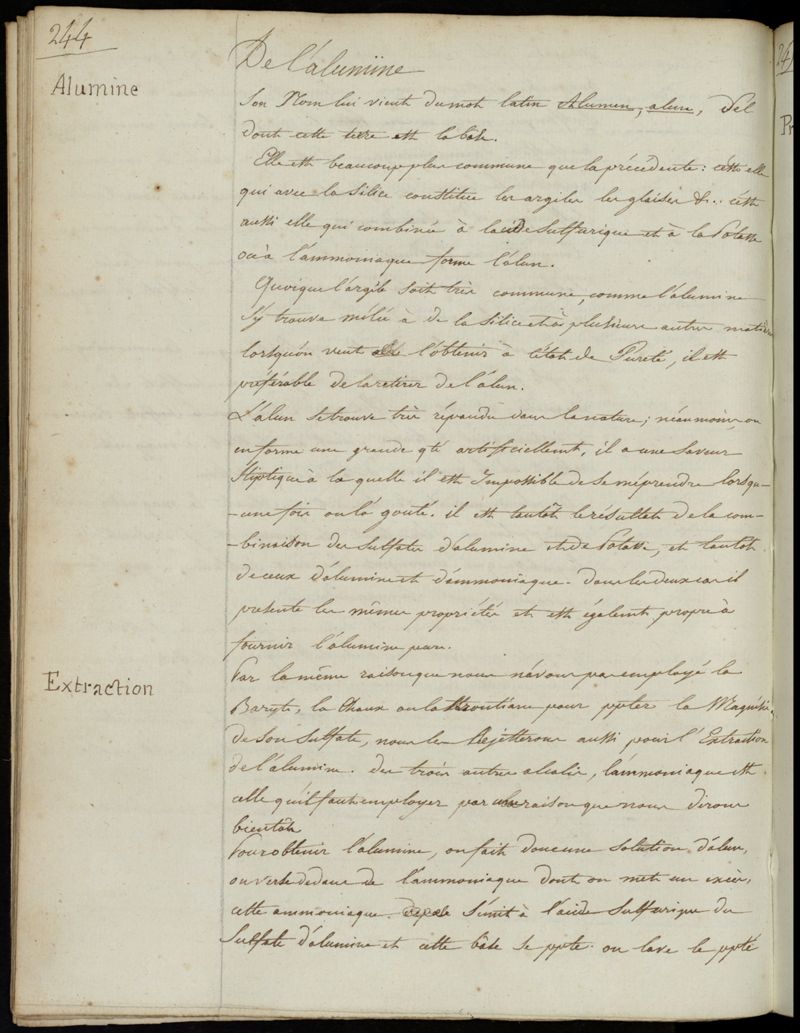 244
Alumine
De l'alumine
Son Nom lui vient du mot latin Alumen, alun, Sel
dont cette terre est la base.
Elle est beaucoup plus commune que la précédente: c'est elle
qui avec la Silice constitue les argiles les glaises &.. c'est
aussi elle qui combinée à l'acide Sulfurique et à la Potasse
ou à l'ammoniaque forme l'alun.
Quoique l'argile soit très commune, comme l'alumine
s'y trouve mêlée à de la Silice et à plusieurs autres matières
lorsqu'on veut l'obtenir à l'état de Pureté, il est
préférable de la retirer de l'alun.
L'alun se trouve très répandu dans la nature; néanmoins on
en forme une grande qté artificiellemt, il a une saveur
Stiptique à la quelle il est Impossible de se méprendre lorsqu-
-une fois on l'a gouté. il est tantôt le résultat de la com-
-binaison des Sulfates d'alumine et de Potasse, et tantôt
de ceux d'alumine et d'ammoniaque. Dans les deux cas il
présente les mêmes propriétés et est égalemt propre à
fournir l'alumine pure.
Extraction
Par la même raison que nous n'avons pas employé la
Baryte, la Chaux ou la Strontiane pour ppter la Magnésie
de son Sulfate, nous les Rejetterons aussi pour l'Extraction
de l'alumine. des trois autres alcalis, l'ammoniaque est
celle qu'il faut employer par une raison que nous dirons
bientôt
Pour obtenir l'alumine, on fait donc une Solution d'alun,
on verse dedans de l'ammoniaque dont on met un excès,
cette ammoniaque s'unit à l'acide Sulfurique du
Sulfate d'alumine et cette base se ppte. on lave le ppté